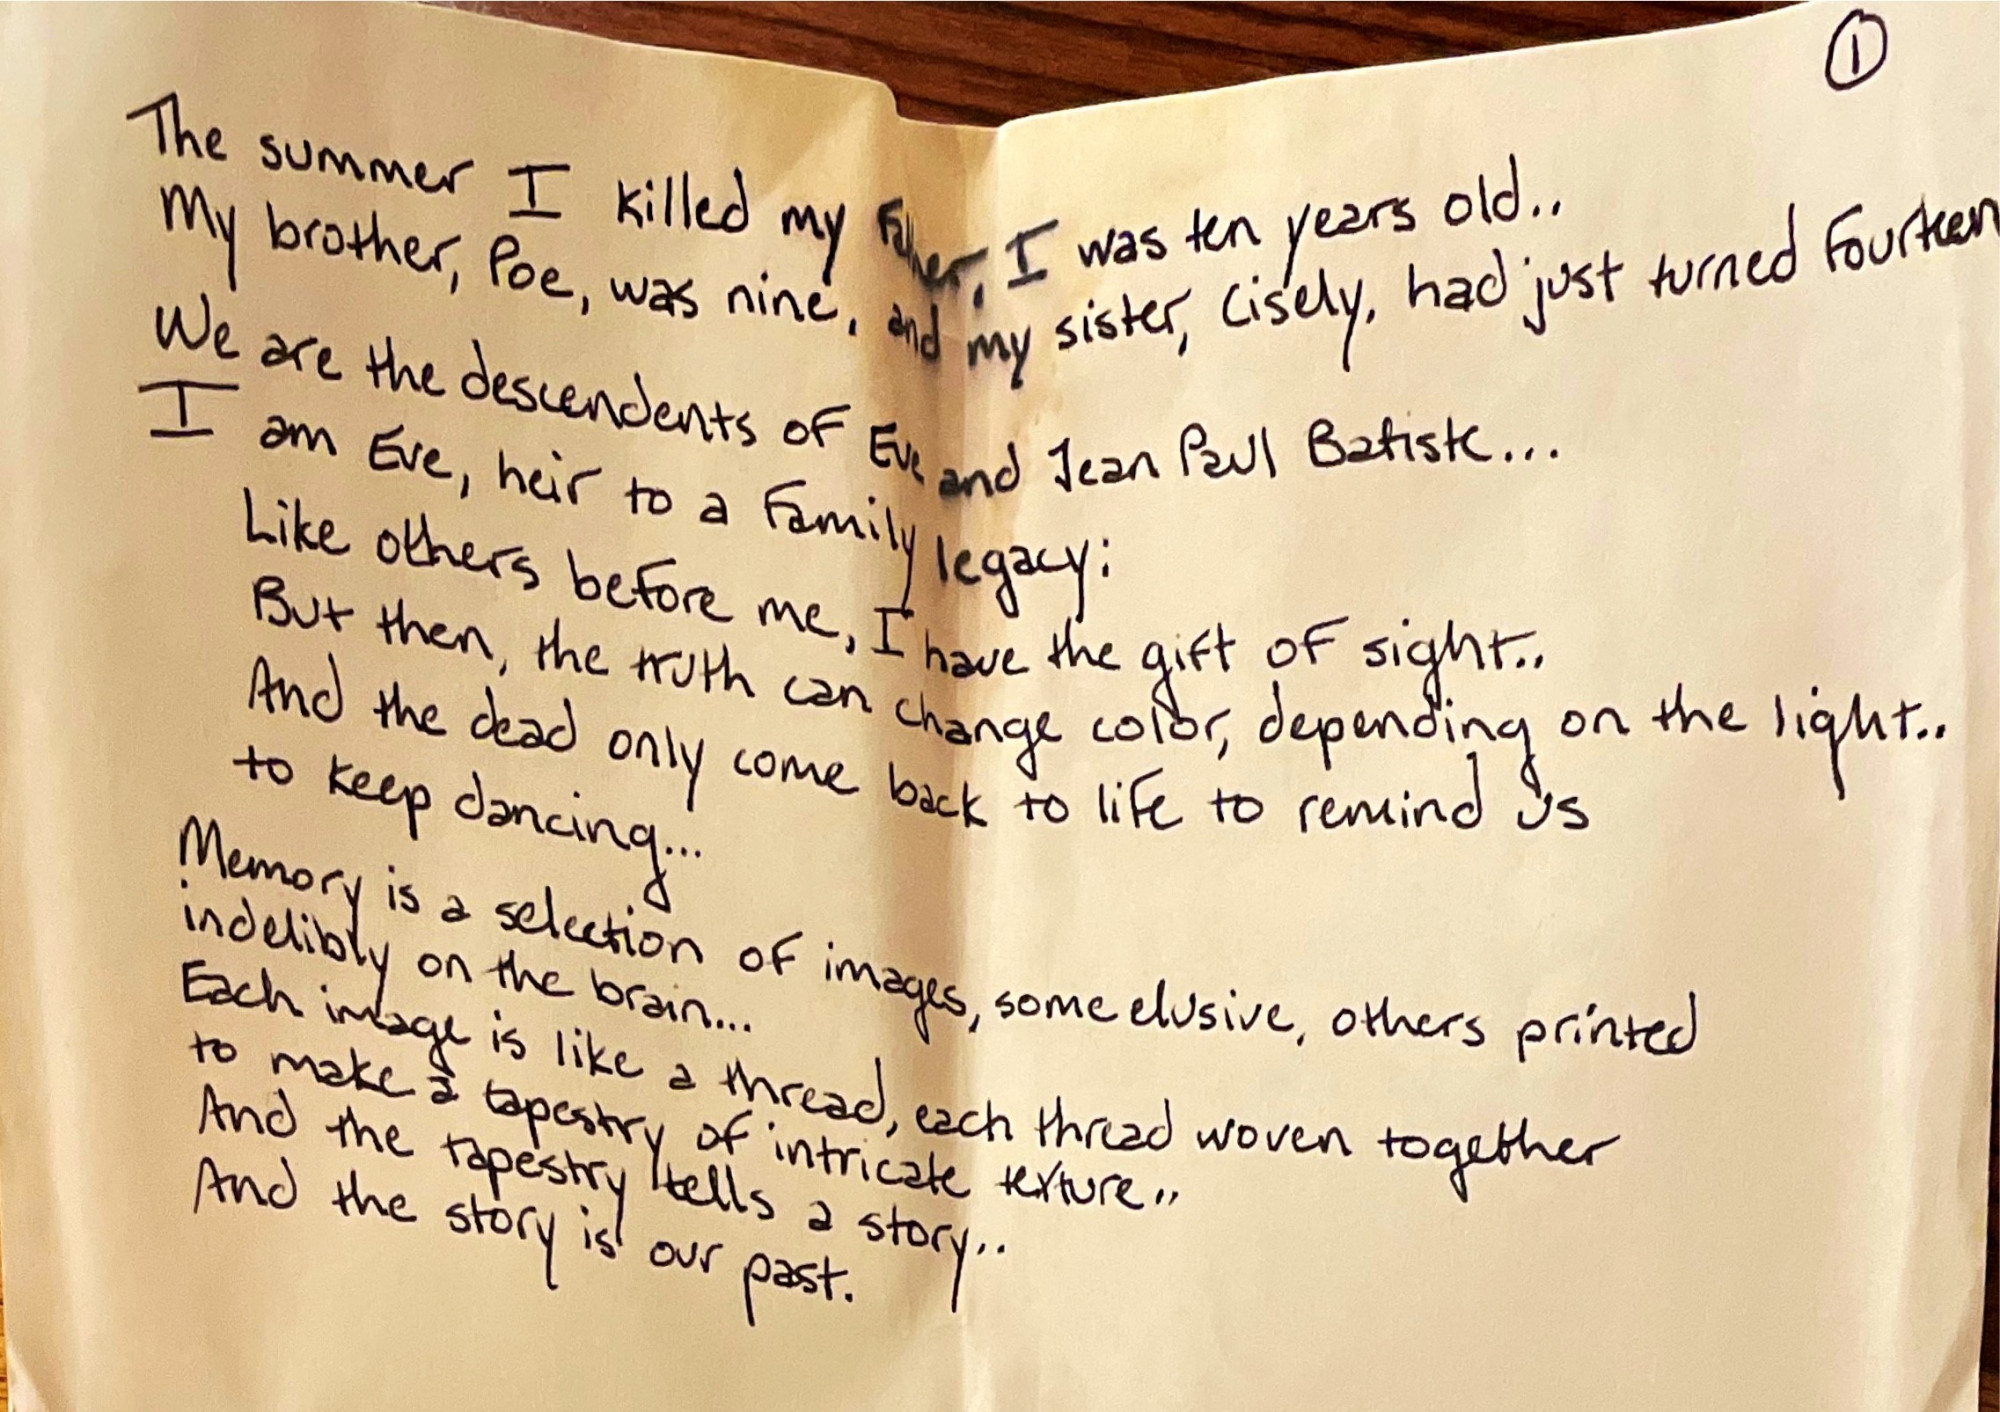 ①
The summer I killed my Father, I was ten years old..
My brother, Poe, was nine, and my sister, Cisely, had just turned Fourteen
We are the descendents of Eve and Jean Paul Batiste...
I am Eve, heir to a Family legacy;
Like others before me, I have the gift of sight..
But then, the truth can change color, depending on the light..
And the dead only come back to life to remind us
to keep dancing...
Memory is a selection of images, some elusive, others printed
indelibly on the brain...
Each image is like a thread, each thread woven together
to make a tapestry of intricate texture..
And the tapestry tells a story..
And the story is our past.